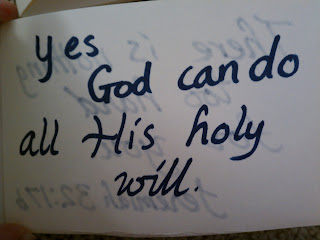 Yes
God can do
all His holy
will.